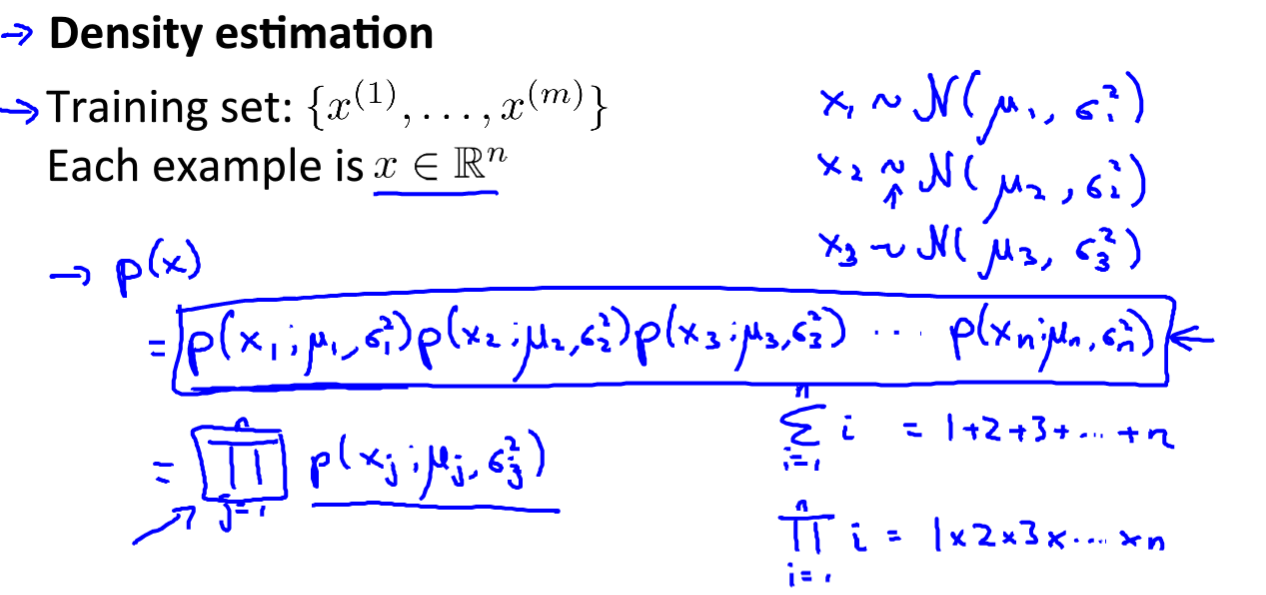 → Density estimation
→ Training set: {x^(1), . . . , x^(m)}
Each example is x ∈ ℝ^n
x₁ ~ N(μ₁, σ₁²)
x₂ ~ N(μ₂, σ₂²)
x₃ ~ N(μ₃, σ₃²)
→ p(x)
= p(x₁; μ₁, σ₁²) p(x₂; μ₂, σ₂²) p(x₃; μ₃, σ₃²) ··· p(xₙ; μₙ, σₙ²) ←
= ∏_{j=1}^{n} p(x_j; μ_j, σ_j²)
∑_{i=1}^{n} i = 1+2+3+...+n
∏_{i=1}^{n} i = 1×2×3×...×n